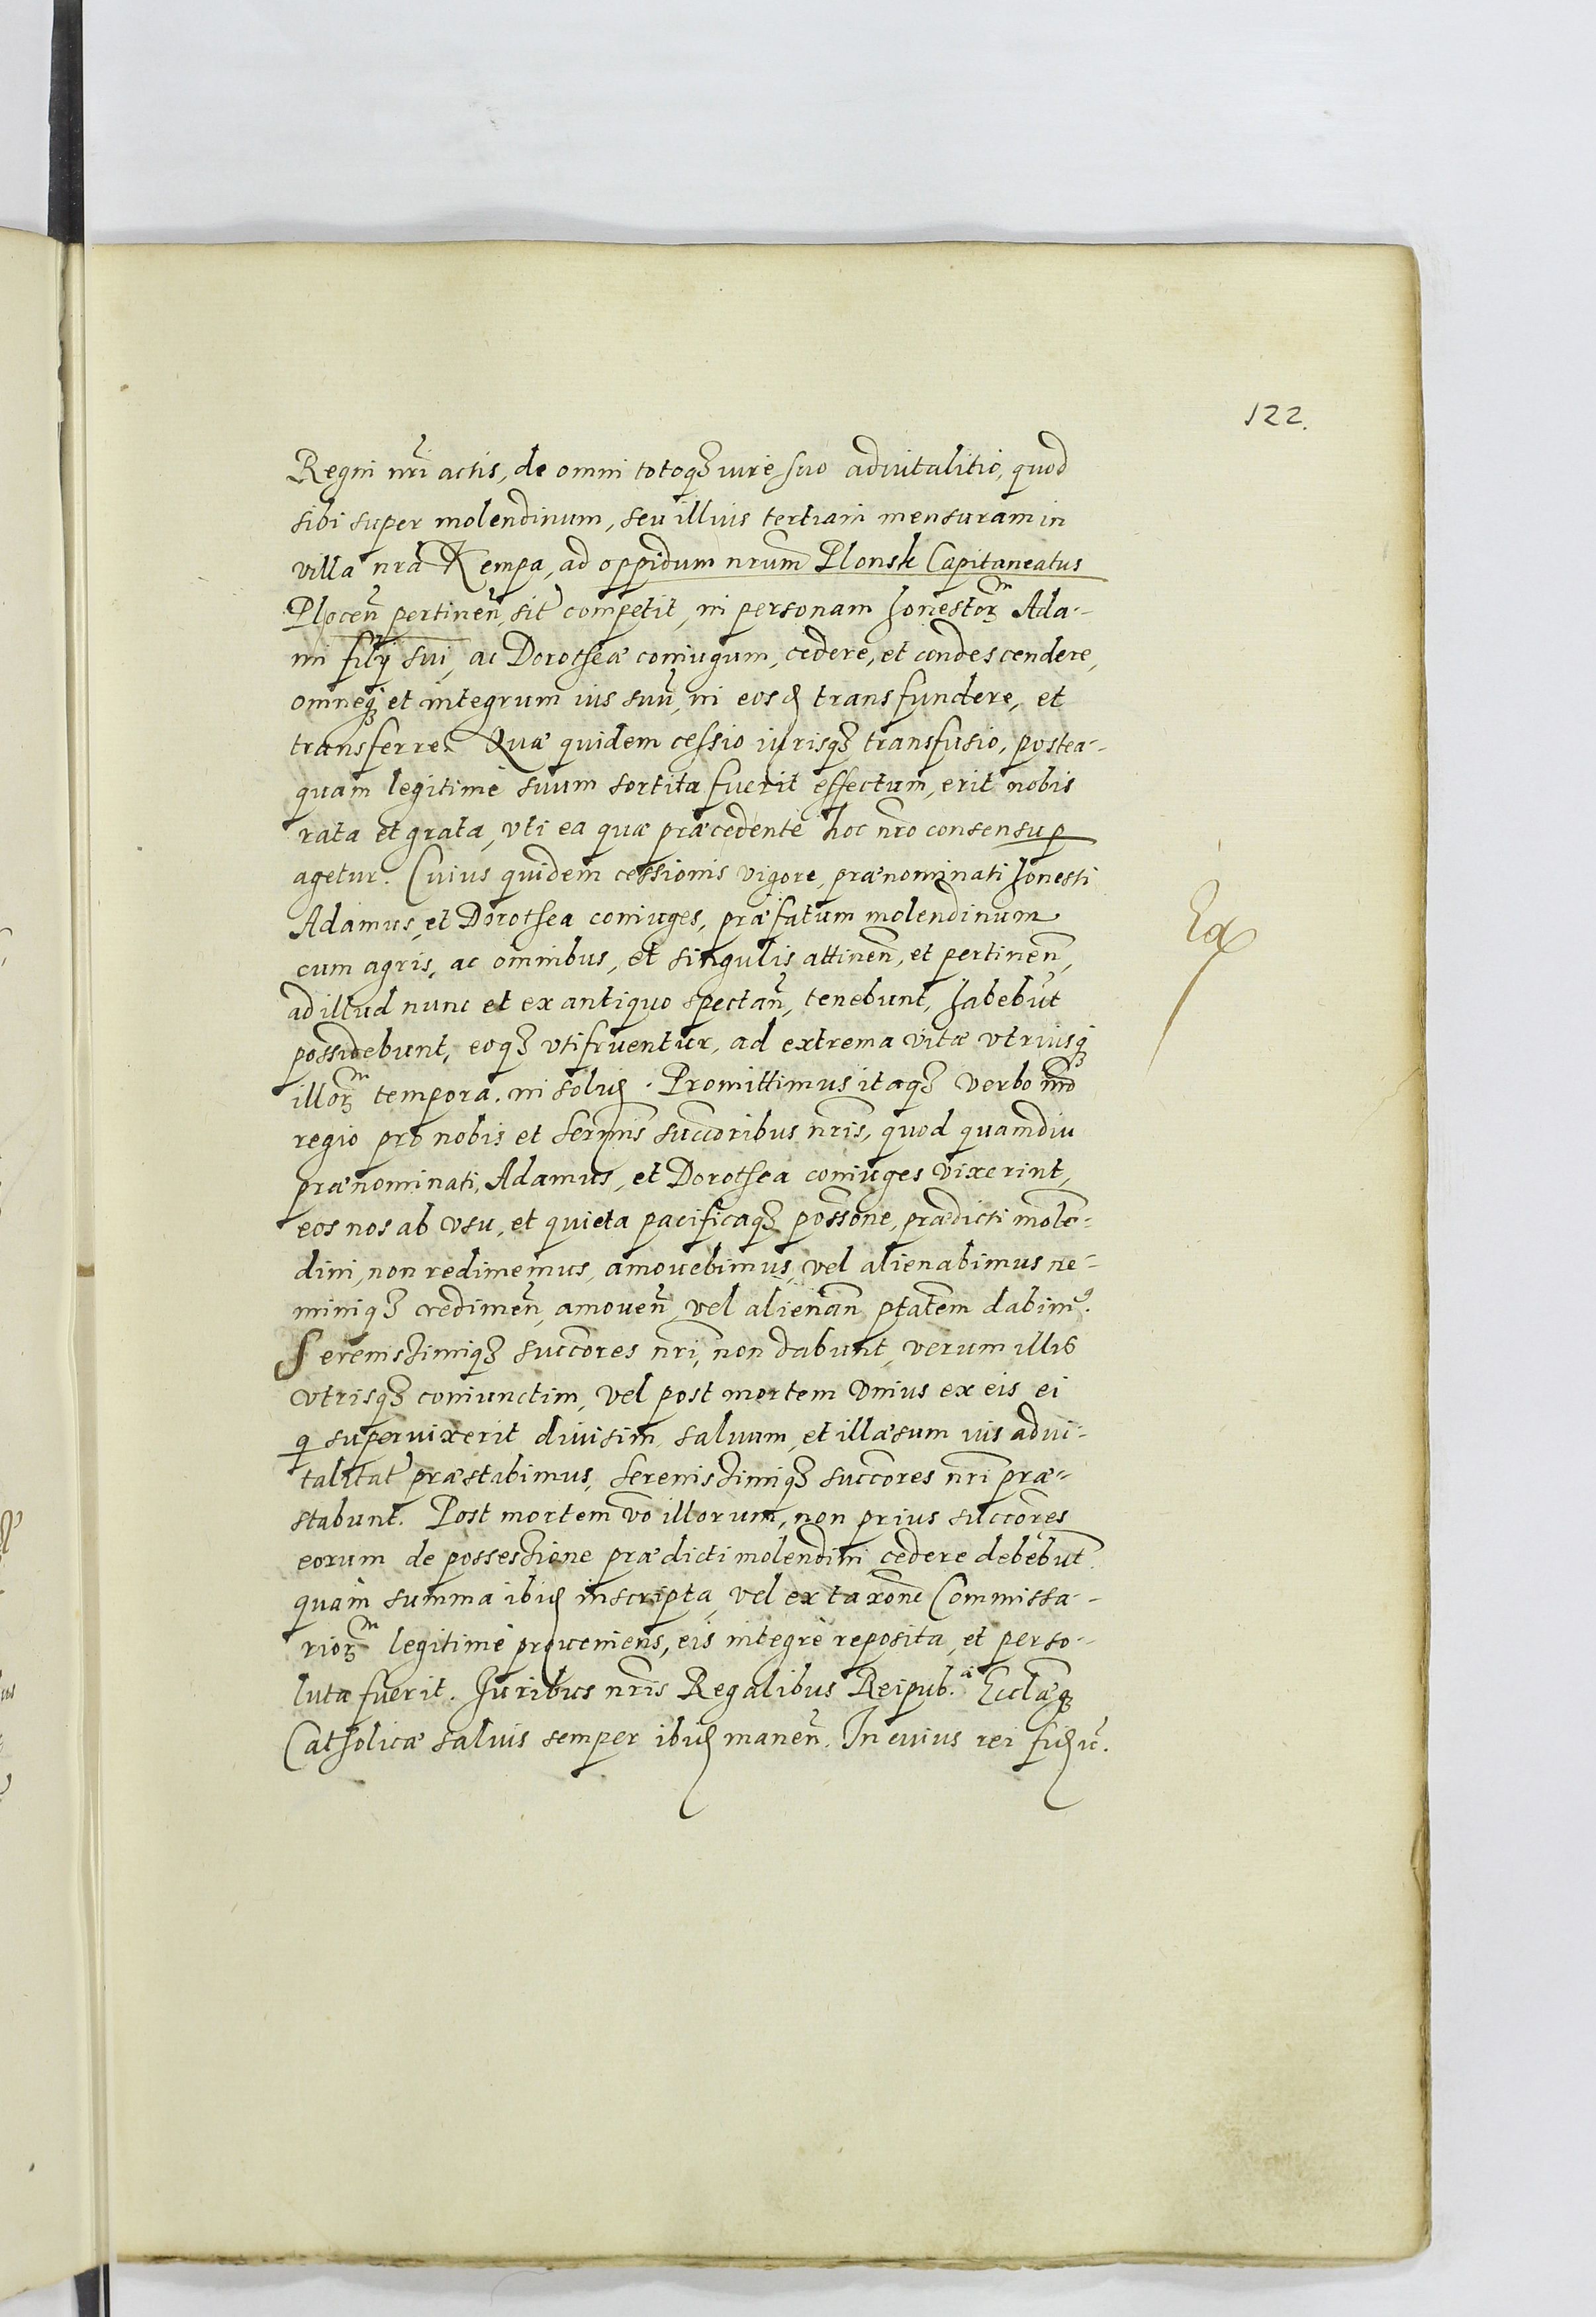 122.
Regni nr̃i actis, de omni totoqȝ iure suo aduitalitio, quod
sibi super molendinum, seu illius tertiam mensuram in
villa nr̃a Kempa, ad oppidum nrũm Plonsk Capitaneatus
Plocen̄ pertinen̄, sit̃ competit, in personam honestorm Ada-
mi filij sui, ac Dorotheæ coniugum, cedere, et condescendere,
omneqȝ et integrum ius suũ, in eosd transfundere, et
transferre. Quæ quidem cessio iurisqȝ transfusio, postea-
quam legitimè suum sortita fuerit effectum, erit nobis
rata et grata, vti ea quæ præcedente hoc nrõ consensu p
agetur. Cuius quidem cessionis vigore, prænominati honesti
Adamus, et Dorothea coniuges, præfatum molendinum
cum agris, ac omnibus, et singulis attinen̄, et pertinen̄,
ad illud nunc et ex antiquo spectan̄, tenebunt, habebũt
possidebunt, eoqȝ vtifruentur, ad extrema vitæ vtriusqȝ
illorm tempora. in solid. Promittimus itaqȝ verbo nrõ
regio pro nobis et Sermis succoribus nr̃is, quod quamdiu
prænominati, Adamus, et Dorothea coniuges vixerint,
eos nos ab vsu, et quieta pacificaqȝ possone, prædicti molẽ-
dini, non redimemus, amouebimus, vel alienabimus ne-
miniqȝ redimen̄, amouen̄, vel alienan̄ ptatem dabimꝰ.
Serenissimiqȝ succores nr̃i, non dabunt, verum illis
vtrisqȝ coniunctim, vel post mortem vnius ex eis ei
q superuixerit diuisim, saluum, et illæsum ius adui-
talitat̃ præstabimus, Serenissimiqȝ succores nr̃i præ-
stabunt. Post mortem võ illorum, non prius succores
eorum de possessione prædicti molendini cedere debebũt
quam summa ibid inscripta, vel ex taxone Commissa-
riorm legitimè proueniens, eis integrè reposita, et perso-
luta fuerit. Iuribus nr̃is Regalibus Reipub.æ Ecclæqȝ
Catholicæ saluis semper ibid manen̄. In cuius rei fidũ.